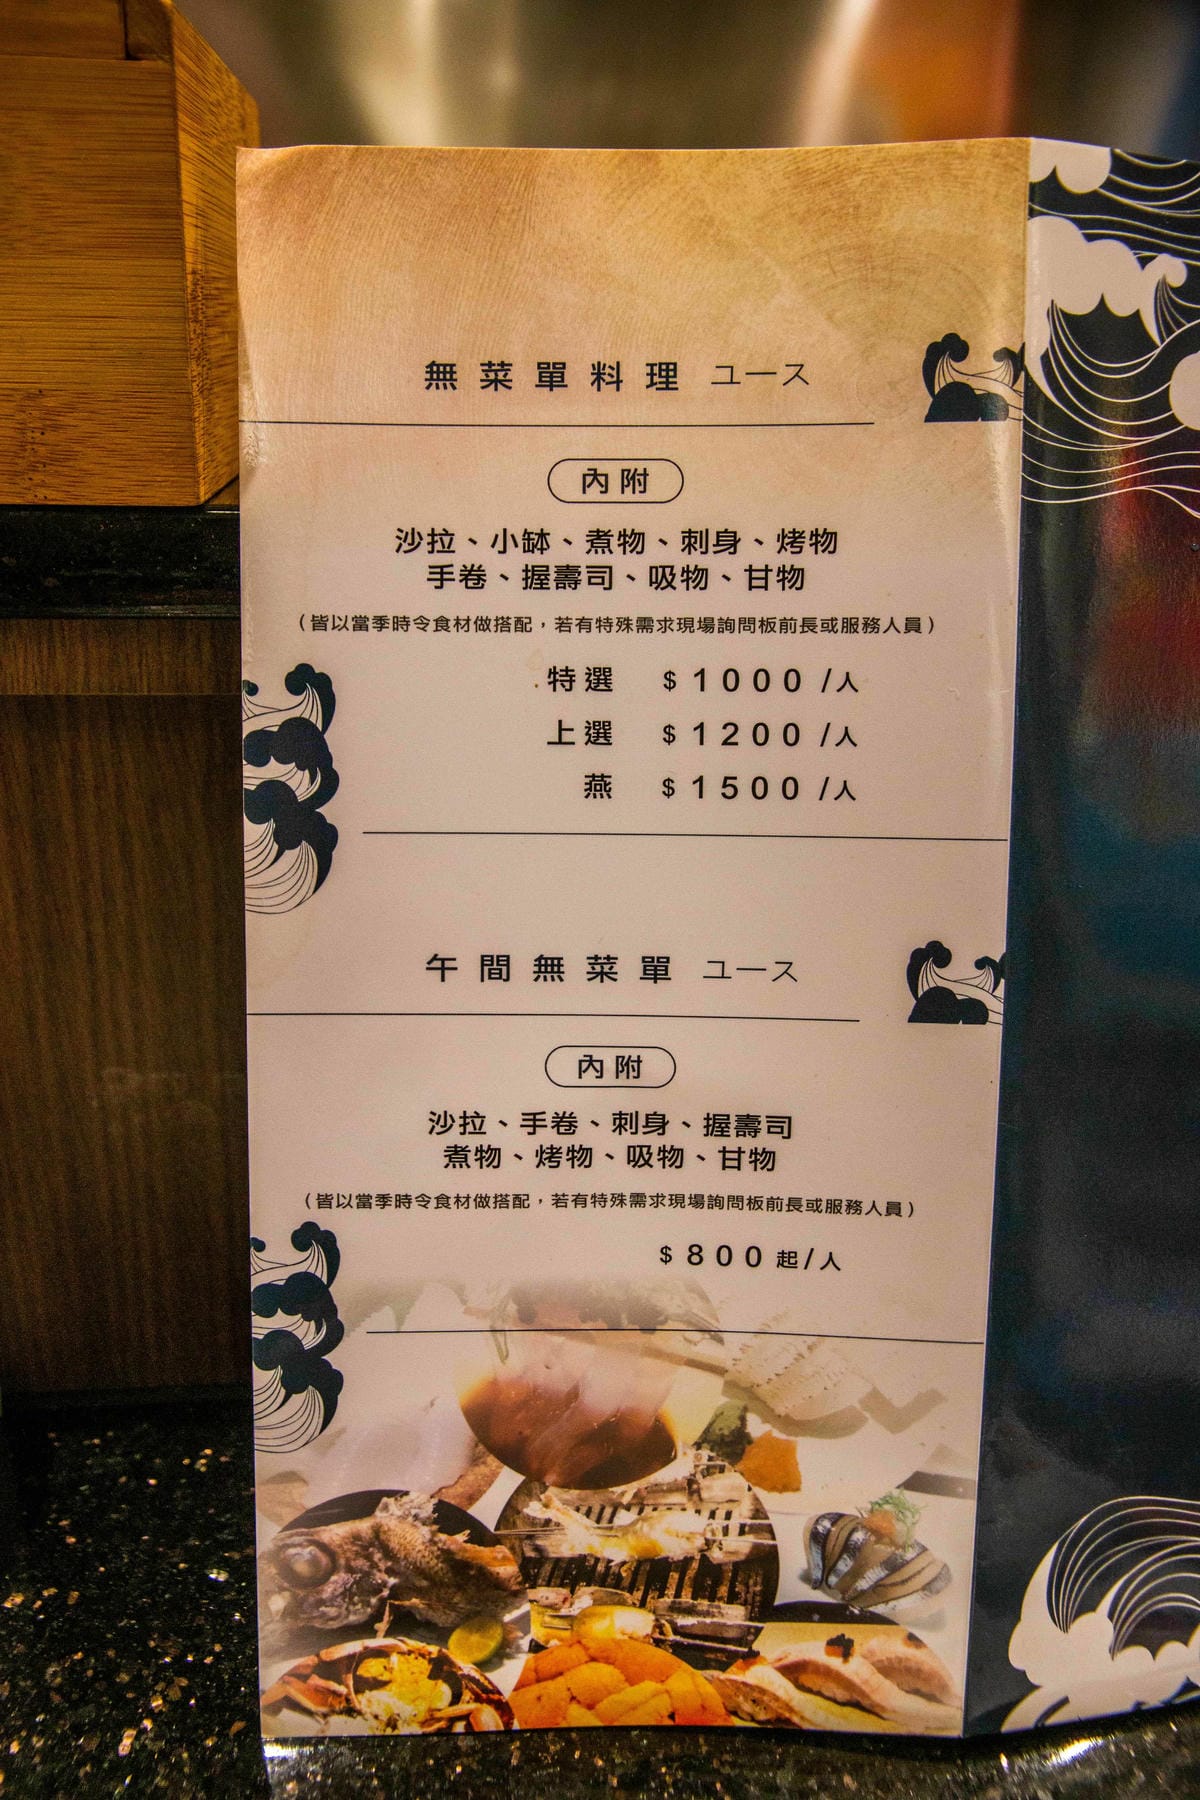 無菜單料理 ユース
內附
沙拉、小缽、煮物、刺身、烤物
手卷、握壽司、吸物、甘物
（皆以當季時令食材做搭配，若有特殊需求現場詢問板前長或服務人員）
特選 $1000/人
上選 $1200/人
燕 $1500/人
午間無菜單 ユース
內附
沙拉、手卷、刺身、握壽司
煮物、烤物、吸物、甘物
（皆以當季時令食材做搭配，若有特殊需求現場詢問板前長或服務人員）
$800起/人